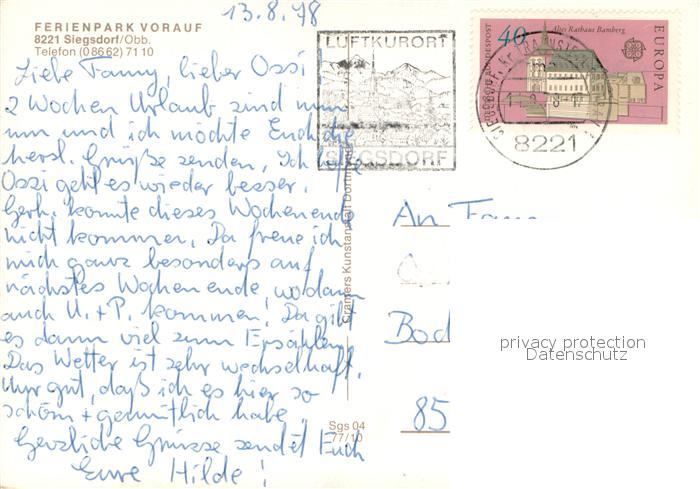 13.8.78
FERIENPARK VORAUF
8221 Siegsdorf/Obb.
Telefon (08662) 7110
Liebe Fanny, lieber Ossi
2 Wochen Urlaub sind nun
um und ich möchte Euch die
herzl. Grüße senden, Ich hoffe
Ossi geht es wieder besser.
Gerh. konnte dieses Wochenende
nicht kommen, Da freue ich
mich ganz besonders auf
nächstes Wochenende, wo dann
auch U. + P. kommen. Da gibt
es dann viel zum Erzählen.
Das Wetter ist sehr wechselhaft.
Nur gut, daß ich es hier so
schön + gemütlich habe.
Herzliche Grüsse sendet Euch
Eure Hilde!
LUFTKURORT
SIEGSDORF
8221
DEUTSCHE BUNDESPOST
40
Altes Rathaus Bamberg
EUROPA
Cramers Kunstanstalt Dortmund
Sgs 04
77/10
An Fann
Bod
85
privacy protection
Datenschutz